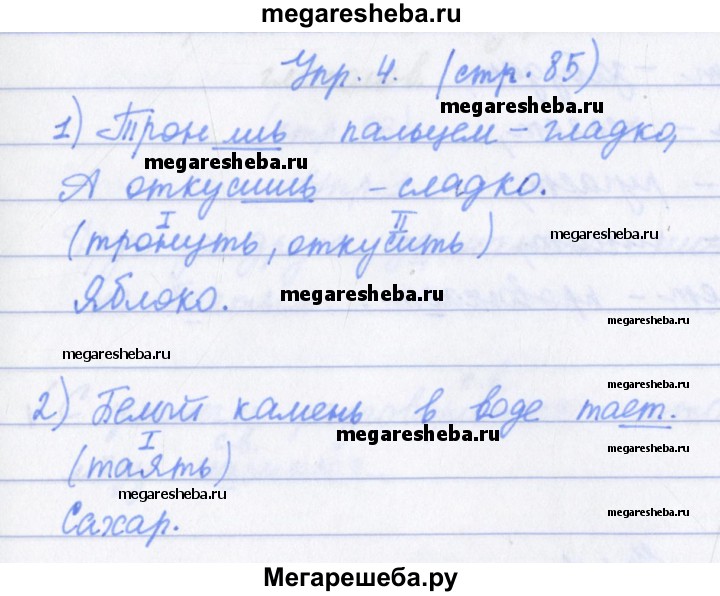 megaresheba.ru
Упр. 4. (стр. 85)
megaresheba.ru
1) Тронешь пальцем – гладко,
megaresheba.ru
А откусишь – сладко.
(тронуть, откусить)
I II
megaresheba.ru
Яблоко.
megaresheba.ru
megaresheba.ru
megaresheba.ru
megaresheba.ru
2) Белый камень в воде тает.
megaresheba.ru
I
(таять)
megaresheba.ru
megaresheba.ru
Сахар.
Мегарешеба.ру